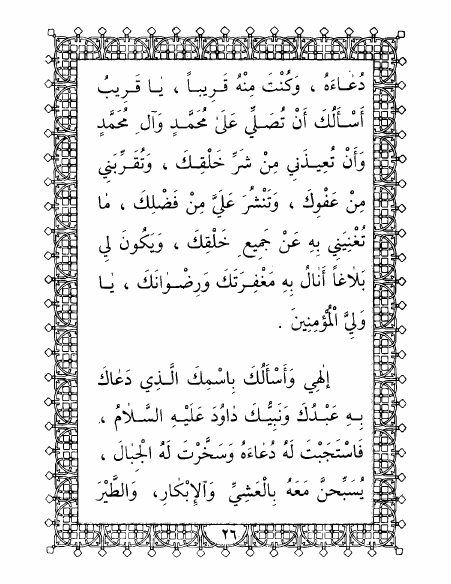 دُعَاءَهُ ، وَكُنْتَ مِنْهُ قَرِيباً ، يَا قَرِيبُ
أَسْأَلُكَ أَنْ تُصَلِّي عَلَىٰ مُحَمَّدٍ وَآلِ مُحَمَّدٍ
وَأَنْ تُعِيذَنِي مِنْ شَرِّ خَلْقِكَ ، وَتُقَرِّبَنِي
مِنْ عَفْوِكَ ، وَتَنْشُرَ عَلَيَّ مِنْ فَضْلِكَ ، مَا
تُغْنِيَنِي بِهِ عَنْ جَمِيعِ خَلْقِكَ ، وَيَكُونَ لِي
بَلَاغاً أَنَالُ بِهِ مَغْفِرَتَكَ وَرِضْوَانَكَ ، يَا
وَلِيَّ الْمُؤْمِنِينَ .
إِلٰهِي وَأَسْأَلُكَ بِاسْمِكَ الَّذِي دَعَاكَ
بِهِ عَبْدُكَ وَنَبِيُّكَ دَاوُدَ عَلَيْهِ السَّلَامُ ،
فَاسْتَجَبْتَ لَهُ دُعَاءَهُ وَسَخَّرْتَ لَهُ الْجِبَالَ ،
يُسَبِّحْنَ مَعَهُ بِالْعَشِيِّ وَالإِبْكَارِ، وَالطَّيْرَ
٢٦